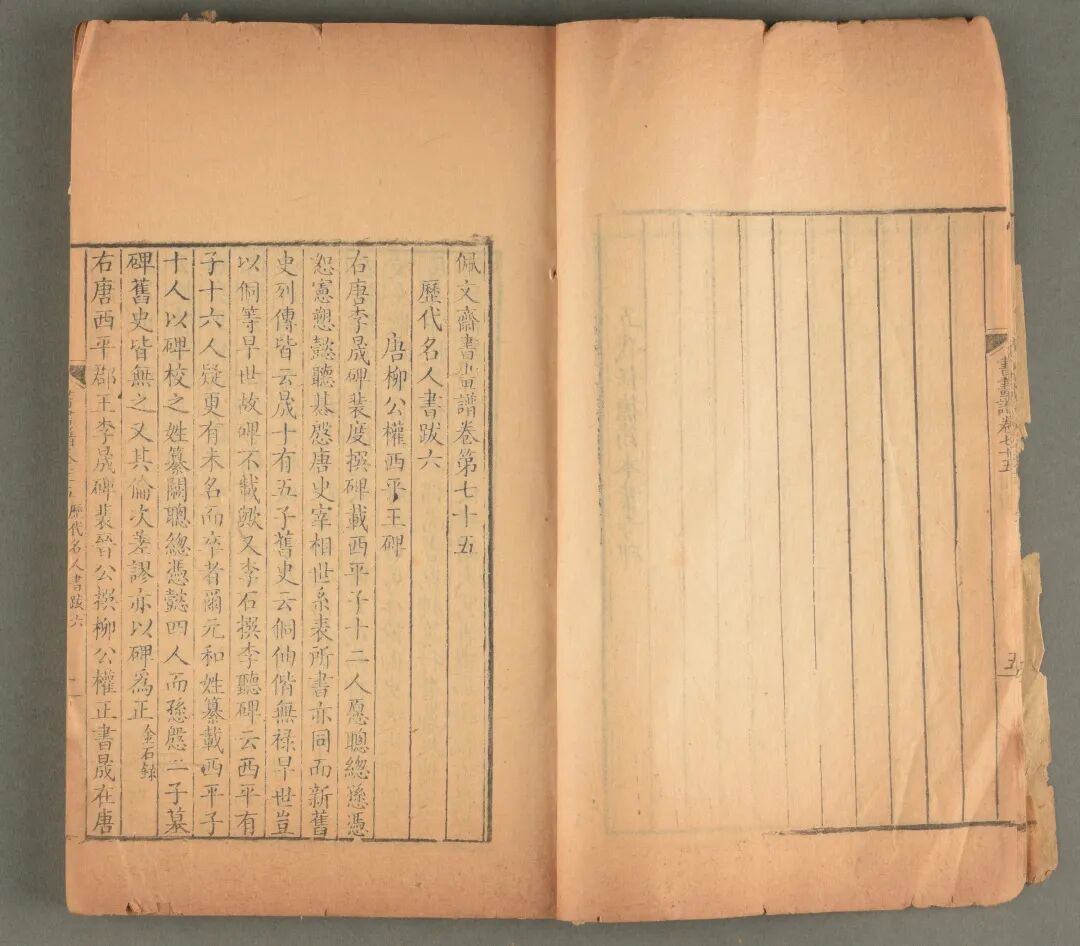 佩文齋書畫譜卷第七十五
歷代名人書跋六
唐柳公權西平王碑
右唐李晟碑裴度撰碑載西平子十二人愿聰總愻憑
恕憲愬懿聽惎慇唐史宰相世系表所書亦同而新舊
史列傳皆云晟十有五子舊史云侗伷偕無祿早世豈
以侗等早世故碑不載歟又李石撰李聽碑云西平有
子十六人疑更有未名而卒者爾元和姓纂載西平子
十人以碑校之姓纂闕聰總憑懿四人而愻慇二子墓
碑舊史皆無之又其倫次差謬亦以碑為正金石錄
右唐西平郡王李晟碑裴晉公撰柳公權正書晟在唐
歷代名人書跋六
書畫譜卷七十五